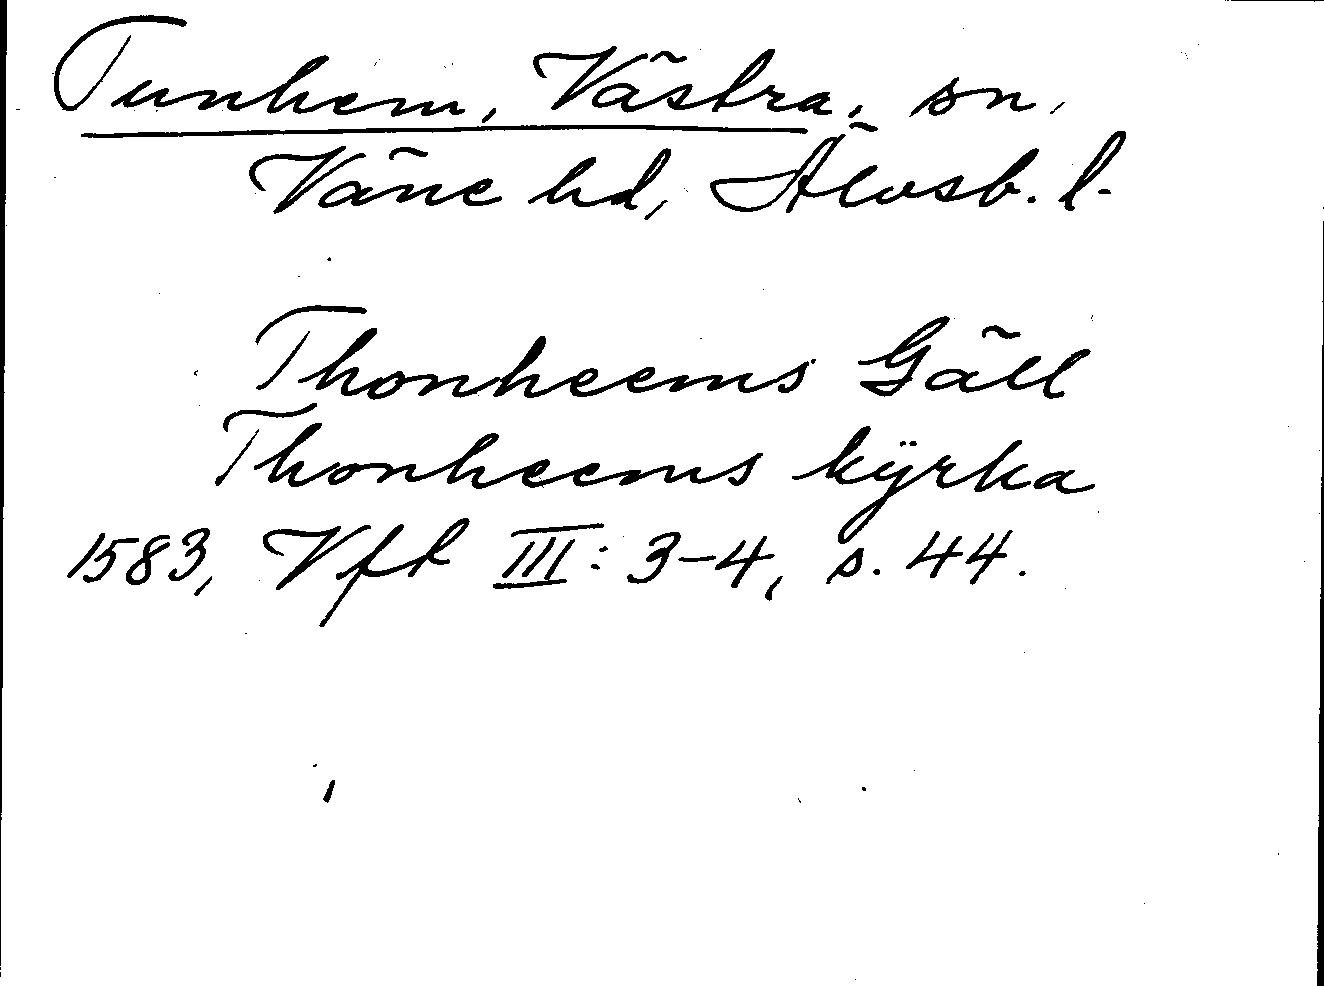 Tunhem, Västra, sn,
Väne hd, Älvsb. l.
Thonheems Gäll
Thonheems kÿrka
1583, Vft III: 3-4, s. 44.